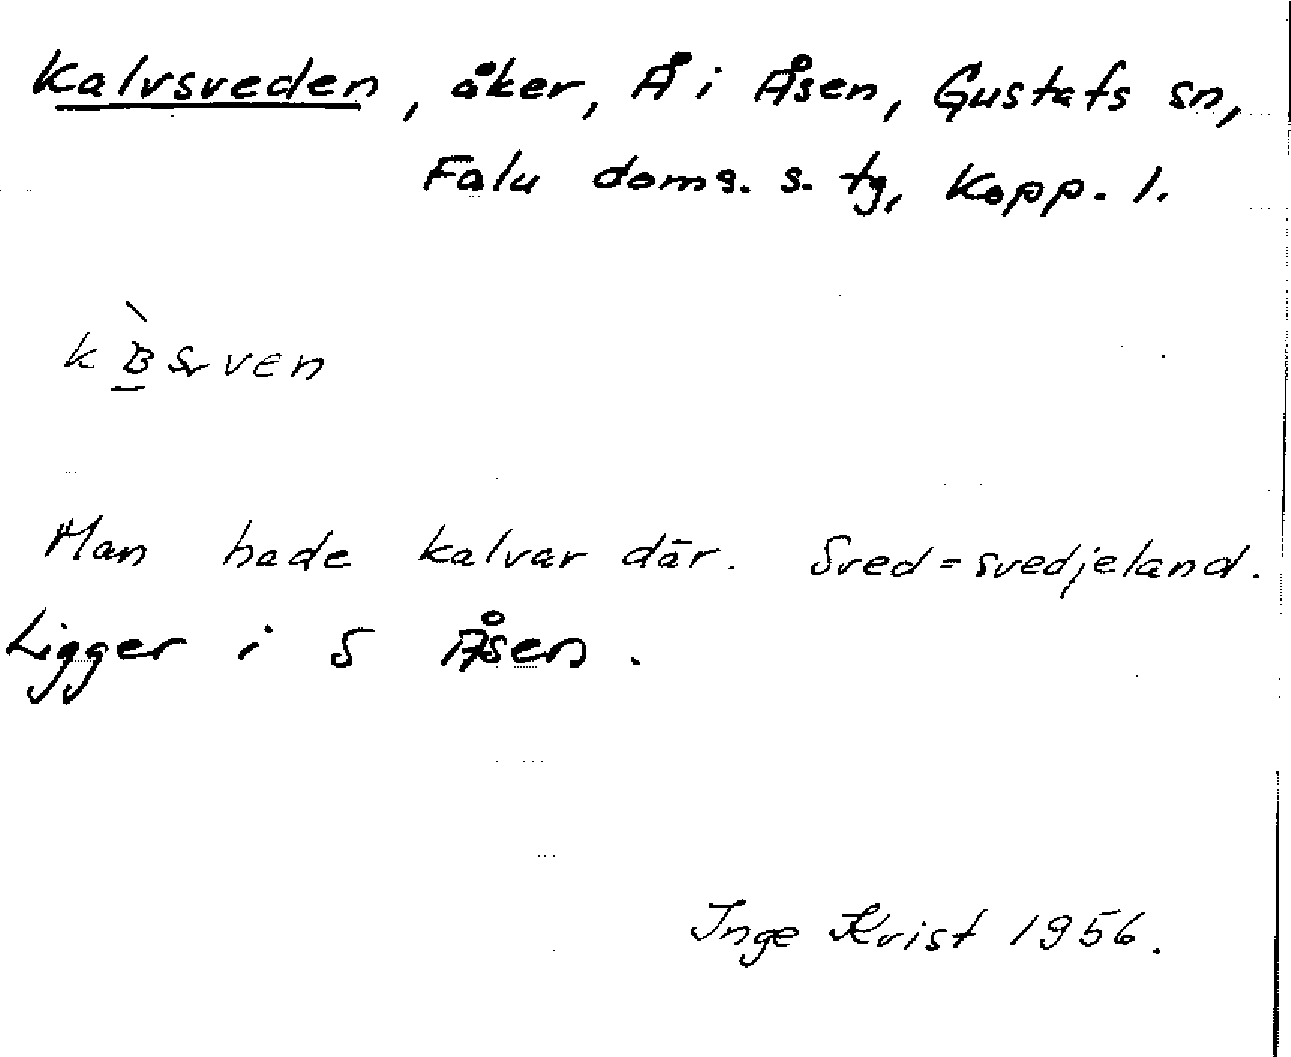 Kalvsveden, åker, Å i Åsen, Gustafs sn,
Falu doms. s. tg, Kopp. l.
Man hade kalvar där. Sved=svedjeland.
Ligger i S Åsen.
Inge Kvist 1956.